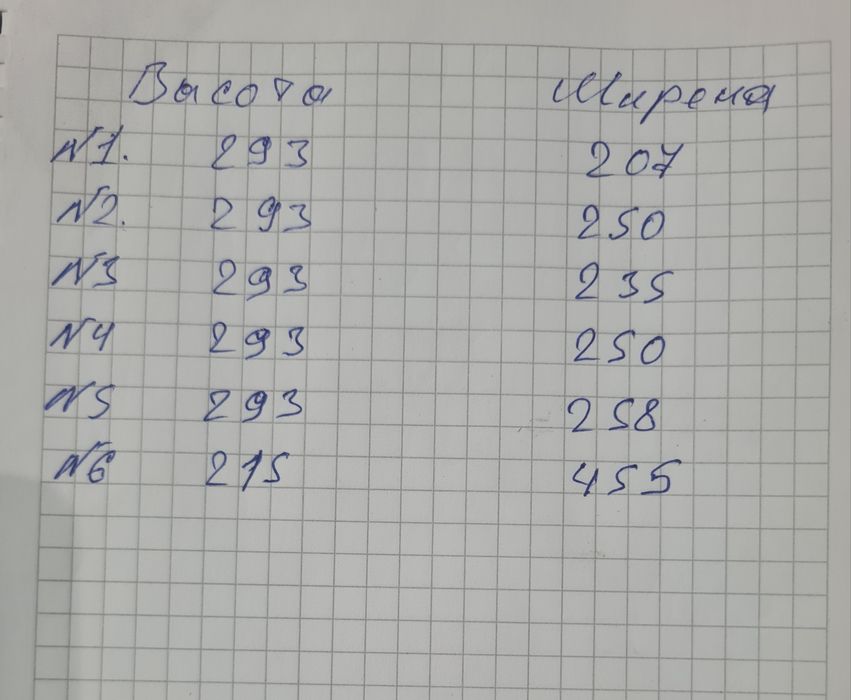 Высота Ширена
N1. 293 207
N2. 293 250
N3 293 235
N4 293 250
N5 293 258
N6 215 455